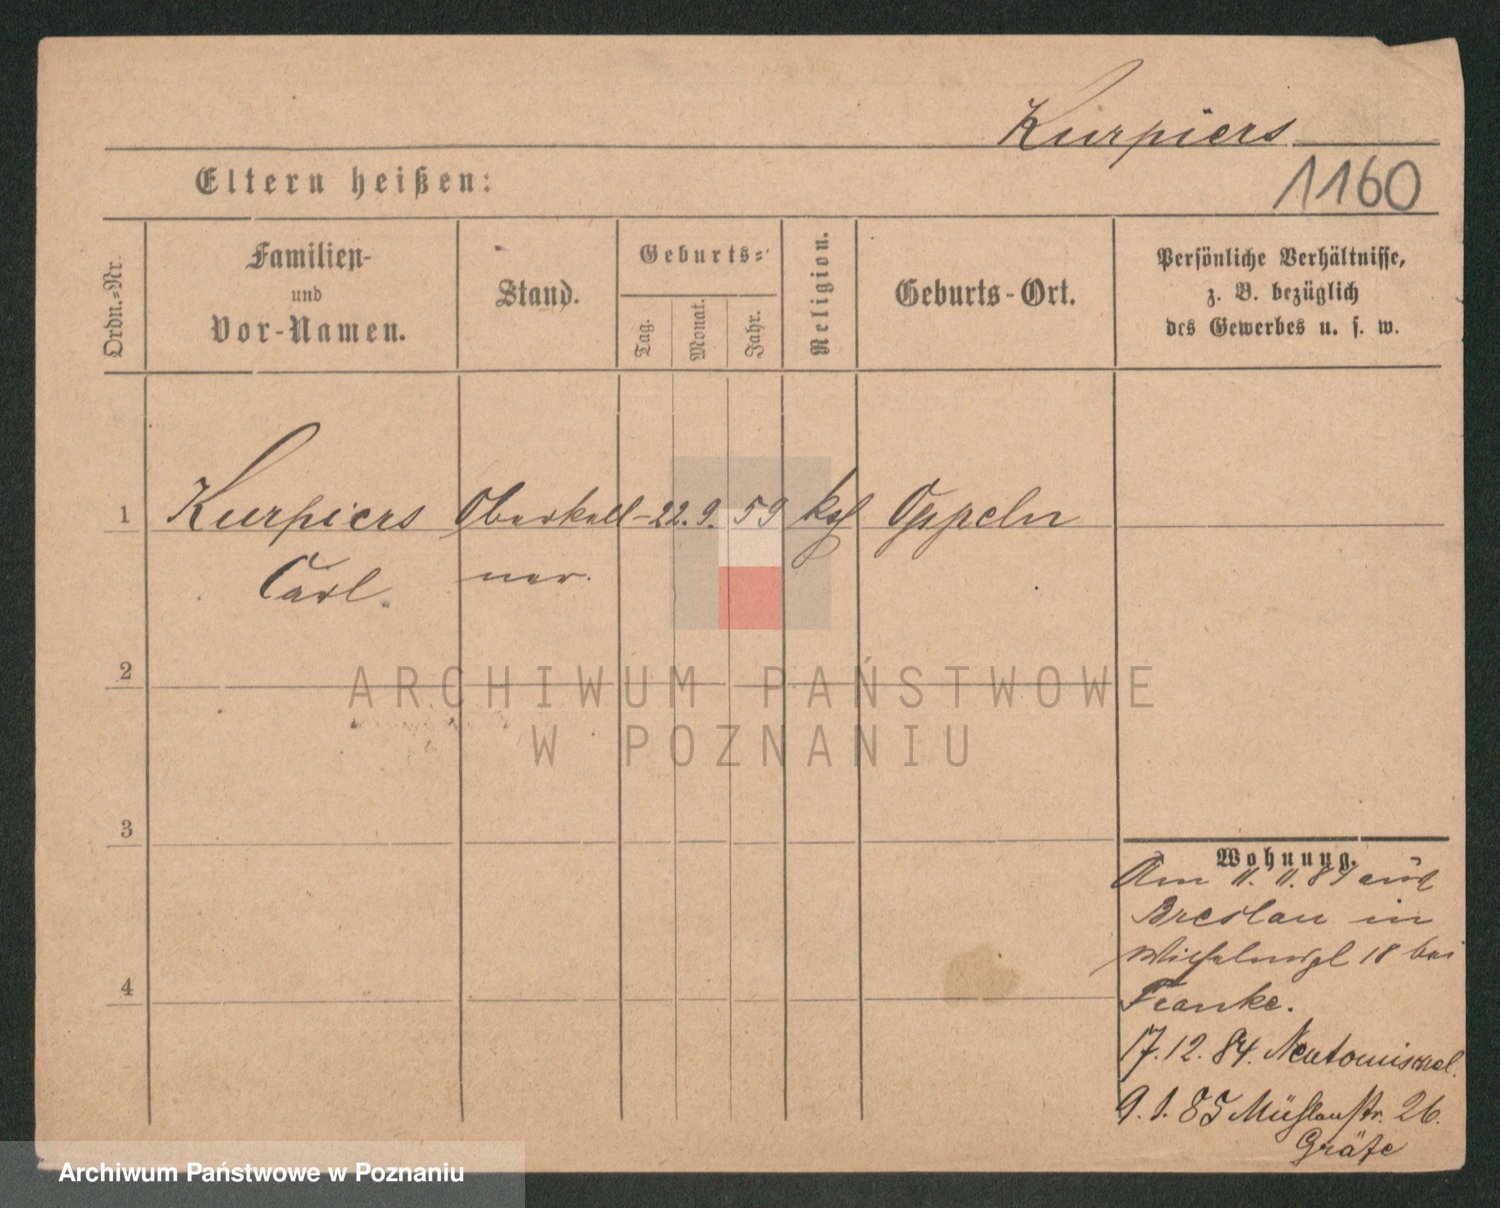 Kurpiers
Eltern heißen:
1160
Ordn.-Nr.
Familien-
und
Vor-Namen.
Stand.
Geburts-
Tag.
Monat.
Jahr.
Religion.
Geburts-Ort.
Persönliche Verhältnisse,
z. B. bezüglich
des Gewerbes u. s. w.
1 Kurpiers Oberkell- 22. 9. 59 kath Oppeln
Carl ner.
2
ARCHIWUM PAŃSTWOWE
W POZNANIU
3
Wohnung.
Am 11. 11. 84 aus
Breslau in
Wilhelmspl 18 bei
4
Franke.
17. 12. 84. Neutomischel.
9. 1. 85 Mühlenstr. 26.
Gräfe
Archiwum Państwowe w Poznaniu